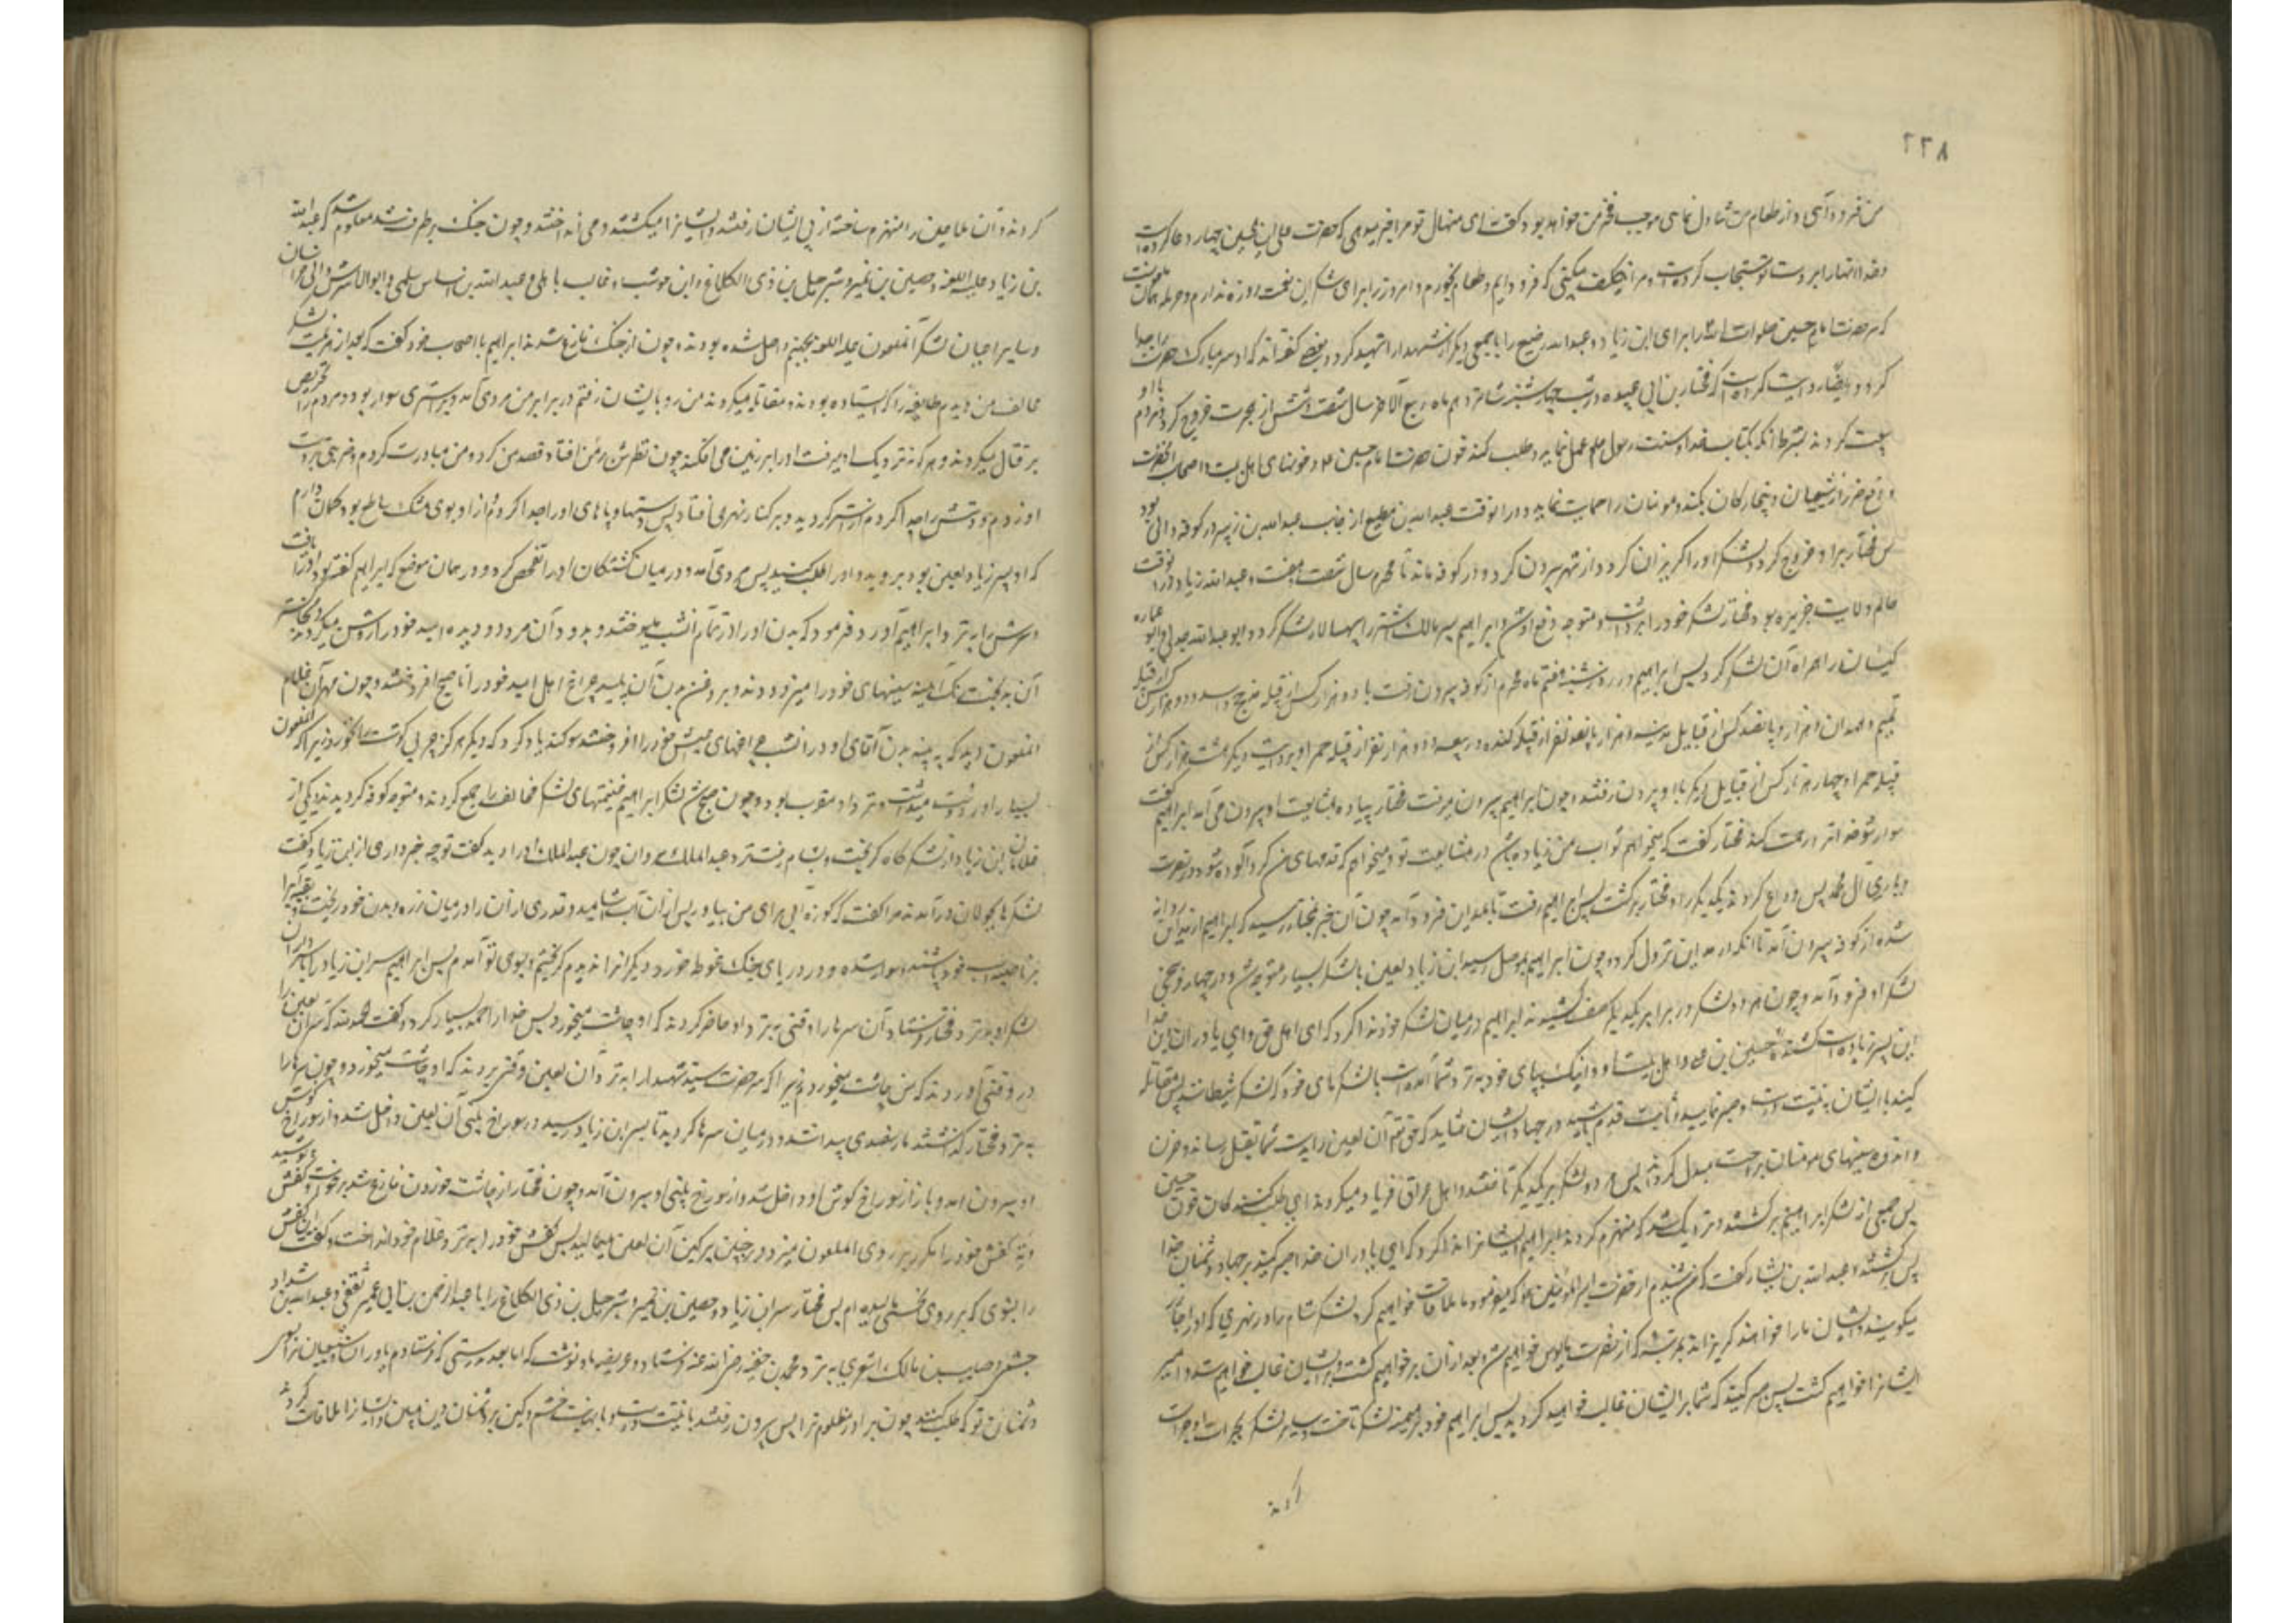 ٢٢٨
من فرود آئی و از طعام من تناول نمای موجب فخر من خواهد بود گفت ای منهال تو مرا خبر میدهی که حضرت علی بن الحسین چهار دعا کرده است
و خدا آنها را بر دست تو مستجاب کرده است و مرا تکلیف میکنی که فرود آیم و طعام بخورم و امروز را برای شکر این نعمت روزه ندارم و حرمله همان
که سر حضرت امام حسین صلوات الله را برای ابن زیاد و عبدالله رضیع را با جمعی دیگر از شهدا را شهید کرد و بعضی گفته‌اند که او سر مبارک حضرت را جدا
کرد و ایضا روایت کرده است که مختار بن ابی عبیده در شب چهارشنبه شانزدهم ماه ربیع الآخر سال شصت و شش از هجرت خروج کرد و مردم با او
بیعت کردند بشرط آنکه بکتاب خدا و سنت رسول عمل نماید و طلب کند خون حضرت امام حسین و خونهای اهل بیت و اصحاب آنحضرت
و دفع ضرر از شیعیان و بیچارگان بکند و مومنان را حمایت نماید و در آنوقت عبدالله بن مطیع از جانب عبدالله بن زبیر در کوفه والی بود
پس مختار بر او خروج کرد و لشکر او را گریزان کرد و از شهر بیرون کرد و در کوفه ماند تا محرم سال شصت و هفت و عبدالله زیاد در آنوقت
حاکم ولایت جزیره بود مختار لشکر خود را برداشت و متوجه دفع او شد و ابراهیم پسر مالک اشتر را سپهسالار لشکر کرد و ابو عبدالله جدلی و ابو عماره
کیسان را همراه آن لشکر کرد پس ابراهیم در روز شنبه هفتم ماه محرم از کوفه بیرون رفت با دو هزار کس از قبیله مذحج و اسد و دو هزار کس از قبیله
تمیم و همدان و هزار و پانصد کس از قبایل مدینه و هزار و پانصد نفر از قبیله کنده و ربیعه و دو هزار نفر از قبیله حمرا و بروایت دیگر هشت هزار کس از
قبیله حمرا و چهار هزار کس از قبایل دیگر با او بیرون رفتند و چون ابراهیم بیرون میرفت مختار پیاده بمشایعت او بیرون می‌آمد ابراهیم گفت
سوار شو خدا ترا رحمت کند مختار گفت که میخواهم ثواب من زیاده باشد در مشایعت تو و میخواهم که قدمهای من گردآلوده شود در نصرت
و یاری آل محمد پس وداع کردند یکدیگر را و مختار برگشت پس ابراهیم رفت تا بمداین فرود آمد چون این خبر بمختار رسید که ابراهیم از مداین روانه
شده از کوفه بیرون آمد تا آنکه در مداین نزول کرد و چون ابراهیم بموصل رسید ابن زیاد لعین با لشکر بسیار متوجه شد و در چهار فرسخی
لشکر او فرود آمد و چون هر دو لشکر در برابر یکدیگر صف کشیدند ابراهیم در میان لشکر خود ندا کرد که ای اهل حق و ای یاوران دین خدا
این پسر زیاد است کشنده حسین بن علی و اهل بیت او و اینک بپای خود بنزد شما آمده است با لشکرهای خود که لشکر شیطانند پس مقاتله
کنید با ایشان به نیت درست و صبر نمایید و ثابت قدم باشید در جهاد ایشان شاید که حق تعالی آن لعین را بدست شما بقتل رساند و حزن
و اندوه سینهای مومنان براحت مبدل گرداند پس هر دو لشکر بر یکدیگر تاختند و اهل عراق فریاد میکردند ای طلب کنندکان خون حسین
پس جمعی از لشکر ابراهیم برگشتند و نزدیک شد که منهزم گردند ابراهیم ایشانرا ندا کرد که ای یاوران خدا صبر کنید بر جهاد دشمنان خدا
پس برگشتند و عبدالله بن یسار گفت که من شنیدم از حضرت امیرالمومنین که میفرمود ما ملاقات خواهیم کرد لشکر شام را در نهری که او را خازر
میگویند و ایشان ما را خواهند گریزاند بمرتبه که از نصرت مایوس خواهیم شد و بعد از آن بر خواهیم گشت و بر ایشان غالب خواهیم شد و امیر
ایشانرا خواهیم کشت پس صبر کنید که شما بر ایشان غالب خواهید گردید پس ابراهیم خود بر میمنه لشکر تاخت و سایر لشکر بجرات او جرات
کردند
کردند و آن ملاعین را منهزم ساخته از پی ایشان رفتند و ایشانرا میکشتند و می انداختند و چون جنگ برطرف شد معلوم شد که عبدالله
بن زیاد علیه اللعنه و حصین بن نمیر و شرحبیل بن ذی الکلاع و ابن حوشب و غالب باهلی و عبدالله بن ایاس سلمی و ابوالاشرس والی خراسان
و سایر اعیان لشکر آنملعون علیه اللعنه بجهنم واصل شده بودند و چون از جنگ فارغ شدند ابراهیم با اصحاب خود گفت که بعد از هزیمت لشکر
مخالف من دیدم طایفه را که ایستاده بودند و مقاتله میکردند من رو بایشان رفتم در برابر من مردی آمد و بر استری سوار بود و مردم را تحریص
بر قتال میکرد و هر که نزدیک او میرفت او را بر زمین می افکند چون نظرش بر من افتاد قصد من کرد و من مبادرت کردم و ضربتی بر دست
او زدم و دستش را جدا کردم از استر گردید و بر کنار نهر افتاد پس دستها و پاهای او را جدا کردم و از او بوی مشک ساطع بود و گمان دارم
که او پسر زیاد لعین بود بروید و او را طلب کنید پس مردی آمد و در میان کشتکان او را تفحص کرد و در همان موضع که ابراهیم گفته بود او را یافت
و سرش را بنزد ابراهیم آورد و فرمود که بدن او را در تمام آنشب میسوختند
آن بدبخت
آنملعون دید که به پیه بدن آقای او در آنشب چراغهای عیش خود را افروختند سوگند یاد کرد که دیگر هرگز چربی گوشت را نخورد زیرا که آنملعون
بسیار او را دوست میداشت و نزد او مقرب بود و چون صبح شد لشکر ابراهیم غنیمتهای لشکر مخالف را جمع کردند و متوجه کوفه گردیدند یکی از
غلامان ابن زیاد از لشکرگاه گریخت و بشام رفت نزد عبدالملک مروان چون عبدالملک او را دید گفت چه خبر داری از ابن زیاد گفت
لشکرها بجولان درآمدند مرا گفت که کوزه آبی برای من بیاور پس از آن آب بیاشامید و قدری از آن را در میان زره و بدن خود ریخت و بقیه را
بر ناصیه اسب خود پاشید و سوار شد و در دریای جنگ غوطه خورد دیگر او را ندیدم گریختم و بسوی تو آمدم پس ابراهیم سر ابن زیاد را با سر سروران
لشکر او بنزد مختار فرستاد و آن سرها را وقتی بنزد او حاضر کردند که او چاشت میخورد پس خدا را حمد بسیار کرد و گفت الحمدلله که سر این لعین را
در وقتی آوردند که من چاشت میخوردم زیرا که سر حضرت سیدالشهدا را بنزد آن لعین در وقتی بردند که او چاشت میخورد و چون سرها را
بنزد مختار گذاشتند مار سفیدی پیدا شد و در میان سرها گردید تا بسر ابن زیاد رسید در سوراخ بینی آن لعین داخل شد و از سوراخ گوش
او بیرون آمد و باز از سوراخ گوش او داخل شد و از سوراخ بینی او بیرون آمد و چون مختار از چاشت خوردن فارغ شد برخاست و کفش پوشید
و ته کفش خود را مکرر بر روی آنملعون میزد و بر جبین پرکین آن لعین میمالید پس کفش خود را بنزد غلام خود انداخت و گفت این کفش
را بشوی که بر روی کافری مالیده‌ام پس مختار سر ابن زیاد و حصین بن نمیر و شرحبیل بن ذی الکلاع را با عبدالرحمن بن ابی عمیر ثقفی و عبدالله بن شداد
جشمی و صایب بن مالک اشعری بنزد محمد بن حنفیه رضی الله عنه فرستاد و عریضه باو نوشت که اما بعد بدرستی که فرستادم یاوران و شیعیان ترا بسوی
دشمنان تو که طلب کنند خون برادر مظلوم ترا پس بیرون رفتند با نیت درست و با نهایت خشم و کین بر دشمنان دین مبین و ایشانرا ملاقات کردند